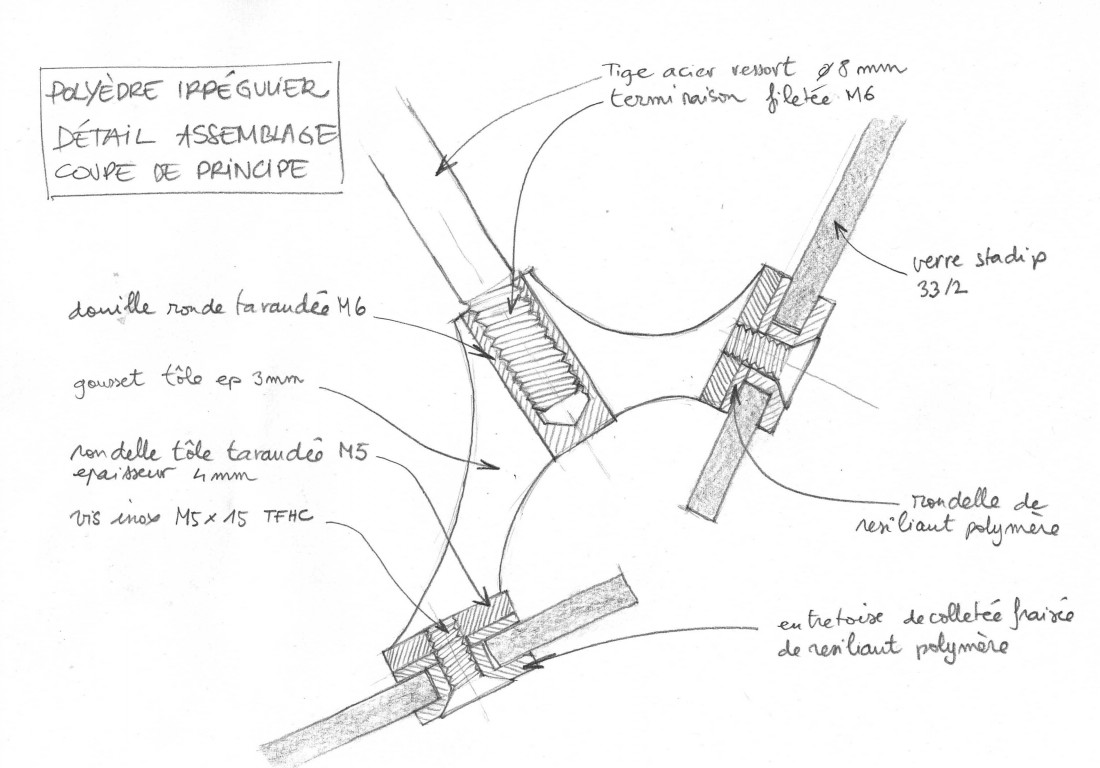 POLYÈDRE IRRÉGULIER
DÉTAIL ASSEMBLAGE
COUPE DE PRINCIPE
Tige acier ressort ø 8 mm
terminaison filetée M6
verre stadip
33/2
douille ronde taraudée M6
gousset tôle ep 3mm
rondelle tôle taraudée M5
epaisseur 4mm
vis inox M5 x 15 TFHC
rondelle de
resiliant polymère
entretoise decolletée fraisée
de resiliant polymère